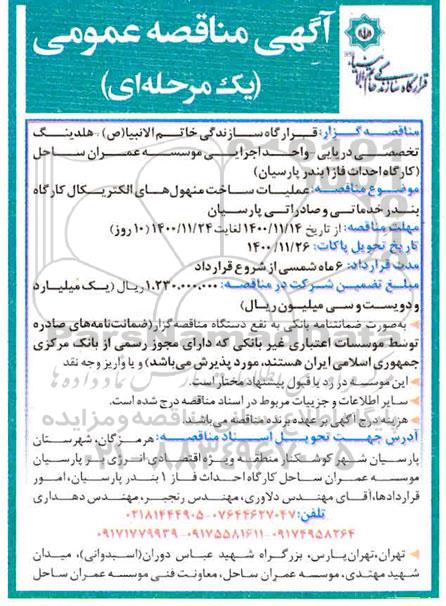 آگهی مناقصه عمومی
(یک مرحله‌ای)
قرارگاه سازندگی خاتم الانبیاء
مناقصه گزار: قرارگاه سازندگی خاتم الانبیا(ص) - هلدینگ
تخصصی دریایی - واحد اجرایی موسسه عمران ساحل
(کارگاه احداث فاز ۱ بندر پارسیان)
موضوع مناقصه: عملیات ساخت منهول‌های الکتریکال کارگاه
بندر خدماتی و صادراتی پارسیان
مهلت مناقصه: از تاریخ ۱۴۰۰/۱۱/۱۴ لغایت ۱۴۰۰/۱۱/۲۴ (۱۰ روز)
تاریخ تحویل پاکات: ۱۴۰۰/۱۱/۲۶
مدت قرارداد: ۶ ماه شمسی از شروع قرارداد
مبلغ تضمین شرکت در مناقصه: ۱.۲۳۰.۰۰۰.۰۰۰ ریال (یک میلیارد
و دویست و سی میلیون ریال)
- به صورت ضمانتنامه بانکی به نفع دستگاه مناقصه گزار (ضمانت‌نامه‌های صادره
توسط موسسات اعتباری غیر بانکی که دارای مجوز رسمی از بانک مرکزی
جمهوری اسلامی ایران هستند، مورد پذیرش می‌باشد) و یا واریز وجه نقد
- این موسسه در رد یا قبول پیشنهاد مختار است.
- سایر اطلاعات و جزییات مربوط در اسناد مناقصه درج شده است.
- هزینه درج آگهی بر عهده برنده مناقصه می‌باشد.
آدرس جهت تحویل اسناد مناقصه: هرمزگان، شهرستان
پارسیان شهر کوشکنار منطقه ویژه اقتصادی انرژی بر پارسیان
موسسه عمران ساحل کارگاه احداث فاز ۱ بندر پارسیان، امور
قراردادها، آقای مهندس دلاوری، مهندس رنجبر، مهندس دهداری
تلفن: ۰۷۶۴۴۶۲۷۰۴۷-۰۲۱۸۱۴۴۴۹۰۵
۰۹۱۷۴۹۵۸۲۶۴-۰۹۱۷۵۵۸۱۶۱۱-۰۹۱۷۱۷۷۹۹۳۹
- تهران، تهران پارس، بزرگراه شهید عباس دوران (استخدوانی)، میدان
شهید مهتدی، موسسه عمران ساحل، معاونت فنی موسسه عمران ساحل